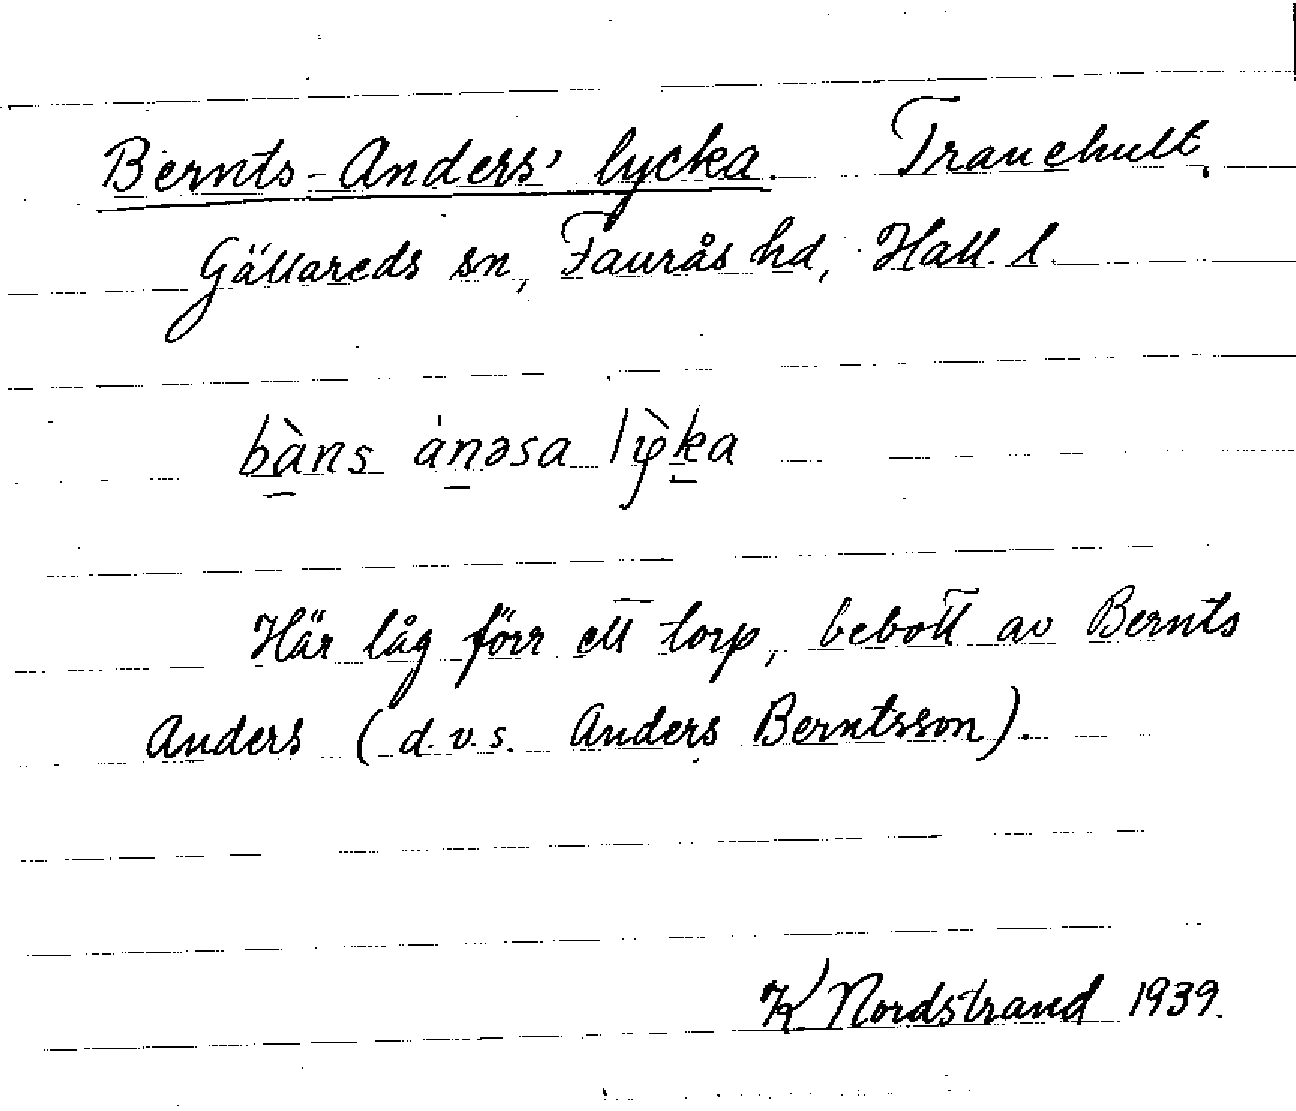 Bernts-Anders' lycka. Tranehult,
Gällareds sn, Faurås hd, Hall. l.
bàns ánəsa lỳka
Här låg förr ett torp, bebott av Bernts
Anders (d.v.s. Anders Berntsson).
K Nordstrand 1939.